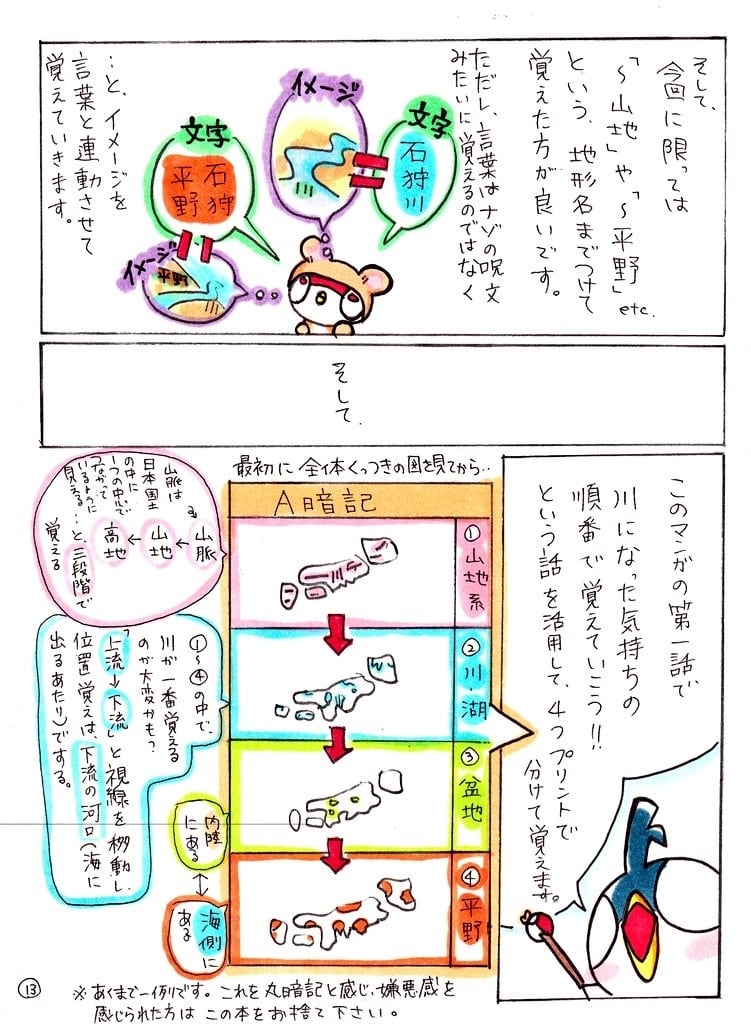 そして、
今回に限っては
「〜山地」や「〜平野」
etc.
という、地形名までつけて
覚えた方が良いです。
ただし、言葉はナゾの呪文
みたいに覚えるのではなく
文字
石狩川
イメージ
文字
石狩
平野
イメージ
平野
…と、イメージを
言葉と連動させて
覚えていきます。
そして、
このマンガの第一話で、
川になった気持ちの
順番で覚えていこう!!
という話を活用して、4つプリントで
分けて覚えます。
最初に全体くっつきの図を見てから‥
A暗記
①山地系
②川・湖
③盆地
④平野
山脈は
日本国土
の中に
1つの中心で
つながって
いるように
見える
山脈
←
山地
←
高地
…と、三段階で
覚える
①〜④の中で、
川が一番覚える
のが大変かも?
「上流→下流」と視線を移動し、
位置覚えは、下流の河口(海に
出るあたり)でする。
内陸
にある
↕
海側に
ある
※あくまで一例りです。これを丸暗記と感じ、嫌悪感を
感じられた方はこの本をお捨て下さい。
⑬